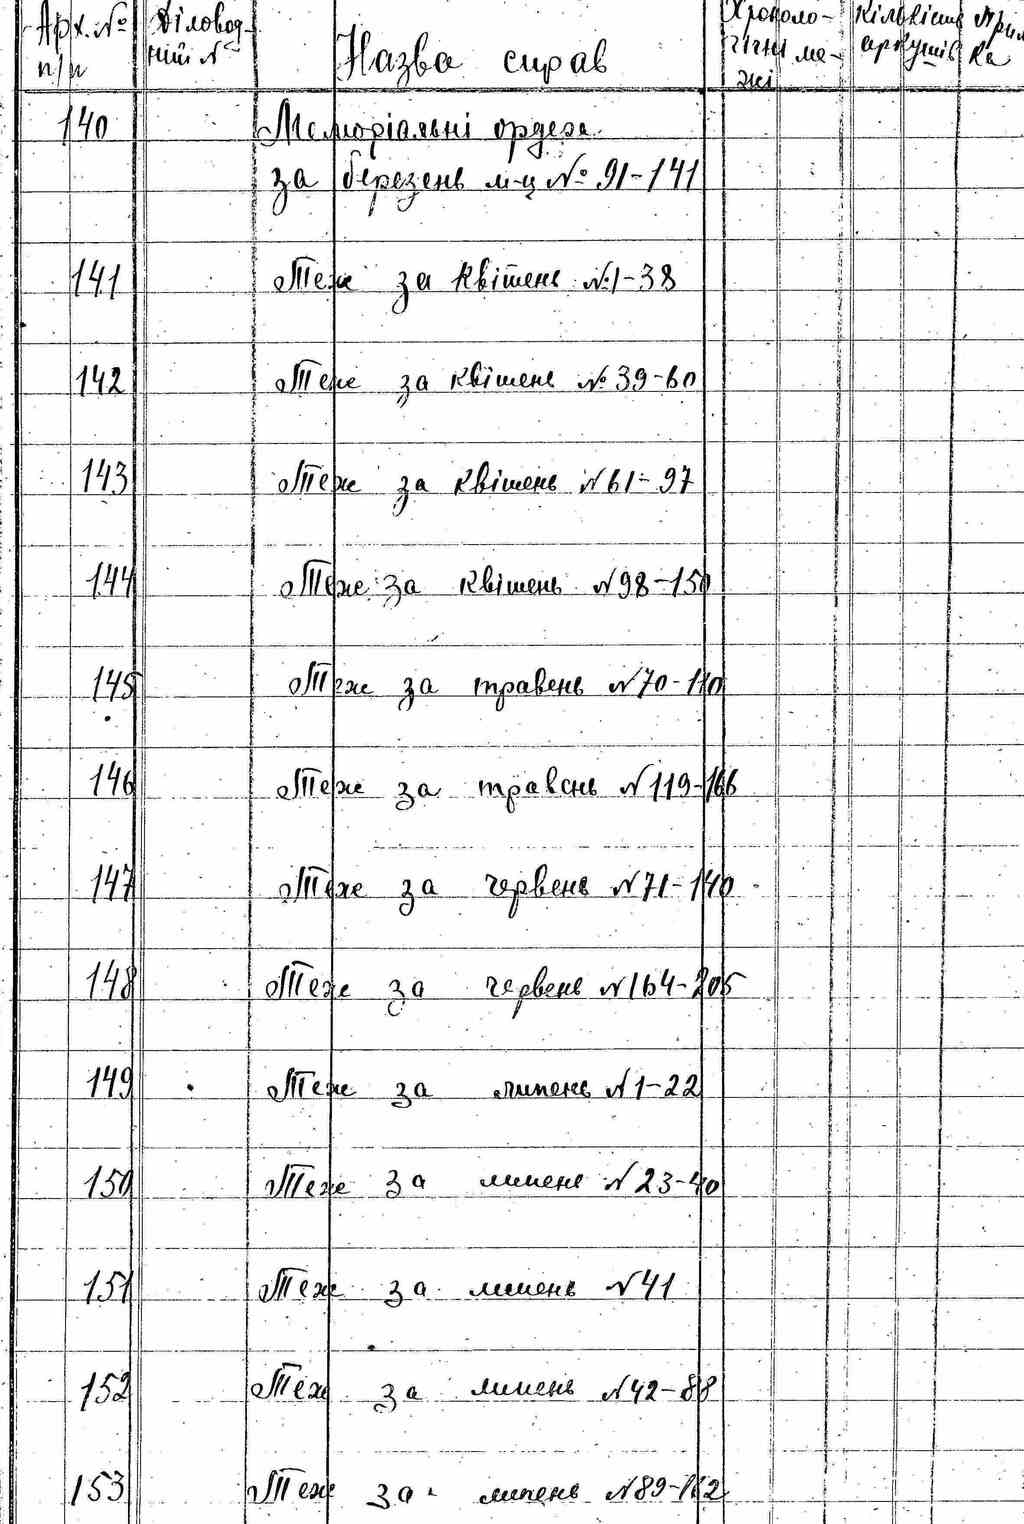 Арх. № Діловод- Назва справ Хроноло- Кількість Прим
п/п ний № гічні ме- аркушів ка
жі
140 Меморіальні ордера
за березень м-ц № 91-141
141 Теж за квітень № 1-38
142 Теж за квітень № 39-60
143 Теж за квітень N 61-97
144 Теж за квітень N 98-150
145 Теж за травень N 70-110
146 Теж за травень N 119-166
147 Теж за червень N 71-140
148 Теж за червень N 164-205
149 Теж за липень N 1-22
150 Теж за липень N 23-40
151 Теж за липень N 41
152 Теж за липень N 42-88
153 Теж за липень N 89-